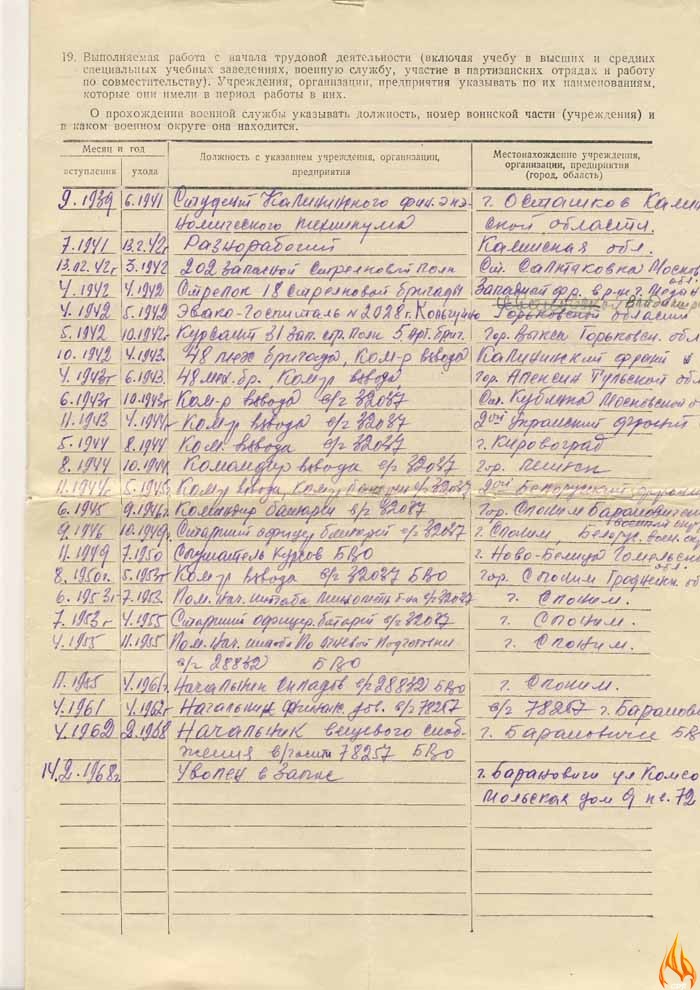 19. Выполняемая работа с начала трудовой деятельности (включая учебу в высших и средних
специальных учебных заведениях, военную службу, участие в партизанских отрядах и работу
по совместительству). Учреждения, организации, предприятия указывать по их наименованиям,
которые они имели в период работы в них.
О прохождении военной службы указывать должность, номер воинской части (учреждения) и
в каком военном округе она находится.
Месяц и год
вступления ухода
Должность с указанием учреждения, организации,
предприятия
Местонахождение учреждения,
организации, предприятия
(город, область)
9.1939 6.1941 Студент Калининского фин. эко- г. Осташков Калинин
номического техникума ской области.
7.1941 13.2.42г Разнорабочий Калининская обл.
13.02.42г 3.1942 202 запасной Стрелковый Полк Ст. Салтыковка Москов. обл.
4.1942 4.1942 Стрелок 18 Стрелковой бригады Западный фр. в р-н г.
4.1942 5.1942 Эвако-госпиталь № 2028 г. Кольчугино Горьковской области
5.1942 10.1942г Курсант 31 Зап. стр. Полк 5. бриг. Гор. Выкса Горьковск. обл
10.1942 4.1943. 48 мех бригада, Ком-р взвода Калининский фронт
4.1943г 6.1943. 48 мех. бр., Ком-р взвода, Гор. Алексин Тульской об
6.1943г 10.1943г Ком-р взвода в/ч 32037 Ст. Кубинка Московской о
11.1943 4.1944г Ком-р взвода в/ч 32037 2ой Украинский фронт
5.1944 8.1944 Ком. взвода в/ч 32037 г. Кировоград
8.1944 10.1944 Командир взвода в/ч 32037 гор. Пинск
11.1944г 5.1945 Ком-р взвода, Ком-р батареи в/ч 32037 2ой Белорусский фронт
6.1945 9.1946г Командир батареи в/ч 32037 Гор. Слоним Барановичский военный окр
9.1946 10.1949г. Старший офицер батареи в/ч 32037 г. Слоним, Белорус. воен. ок
11.1949 7.1950 Слушатель Курсов БВО г. Ново-Белица Гомельск обл.
8.1950г. 5.1953г Ком-р взвода в/ч 32037 БВО гор. Слоним Гродненск. об
6.1953г 7.1953. Пом. нач. штаба б-на в/ч 32037 г. Слоним.
7.1953г 4.1955 Старший офицер батареи в/ч 32037 г. Слоним.
4.1955 11.1955 Пом. нач. штаба По огневой Подготовки г. Слоним.
в/ч 28832 БВО
11.1955 4.1961г. Начальник Складов в/ч 28832 БВО г. Слоним.
4.1961 4.1962г Начальник финанс. дов. в/ч 78257 в/ч 78257 г. Баранов
4.1962 2.1968 Начальник вещевого снаб- г. Барановичи БВ
жения в/части 78257 БВО
14.2.1968г Уволен в Запас г. Барановичи ул Комсо
мольская дом 9 кв. 72